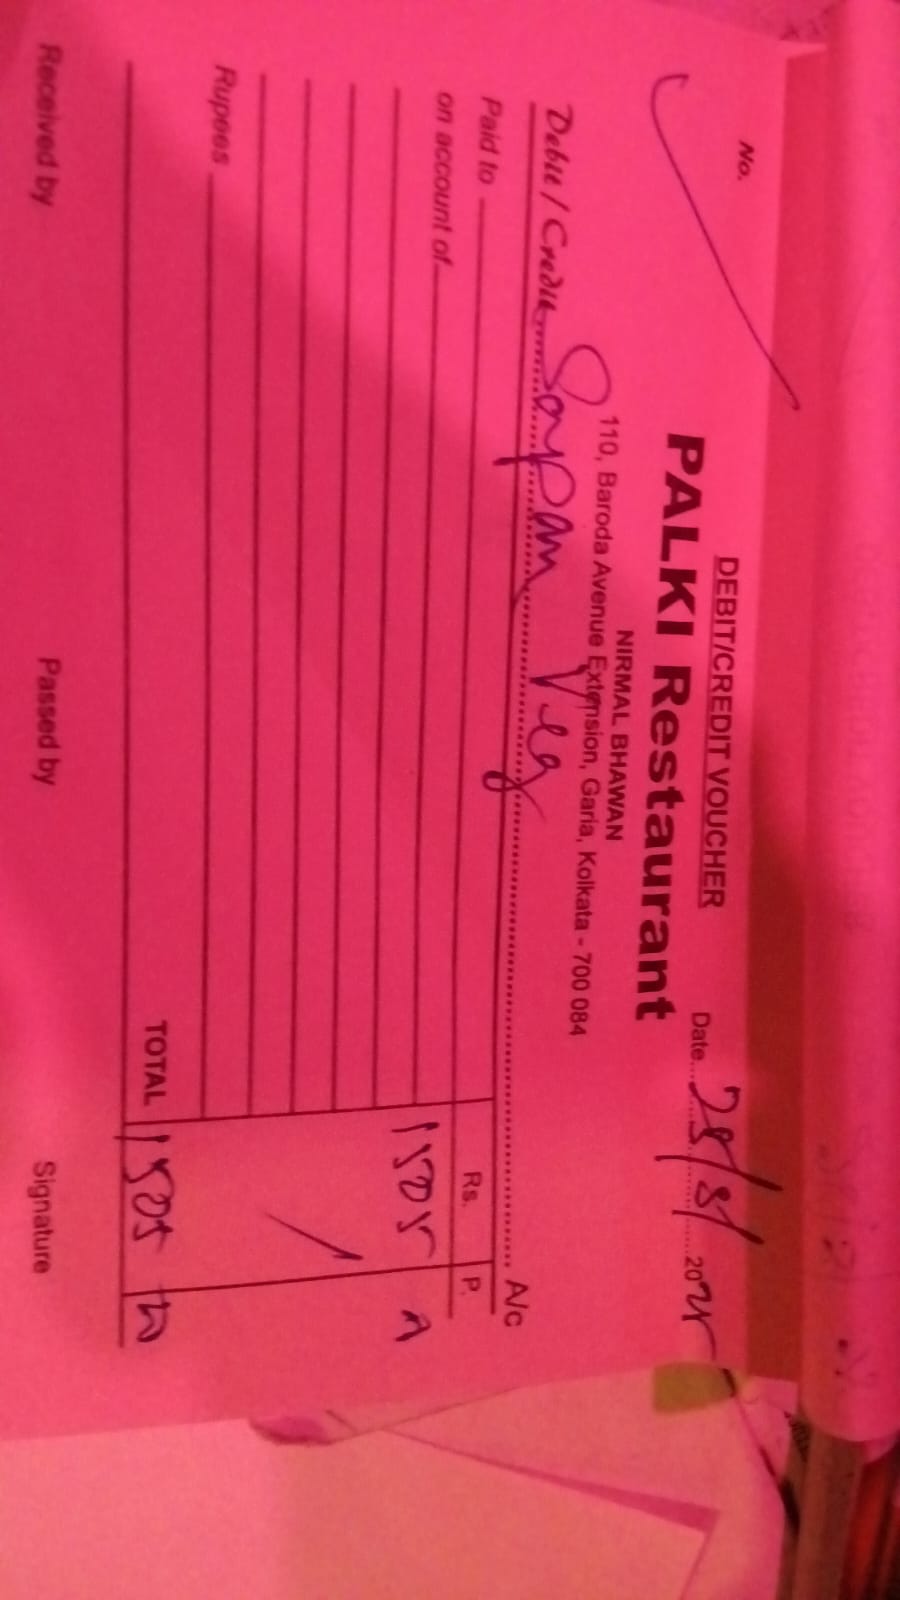 DEBIT/CREDIT VOUCHER
No.
Date 28/8/20
PALKI Restaurant
NIRMAL BHAWAN
110, Baroda Avenue Extension, Garia, Kolkata - 700 084
Debit / Credit Saypan Veg A/c
Paid to Rs. P.
on account of
Rupees
TOTAL
Received by Passed by Signature